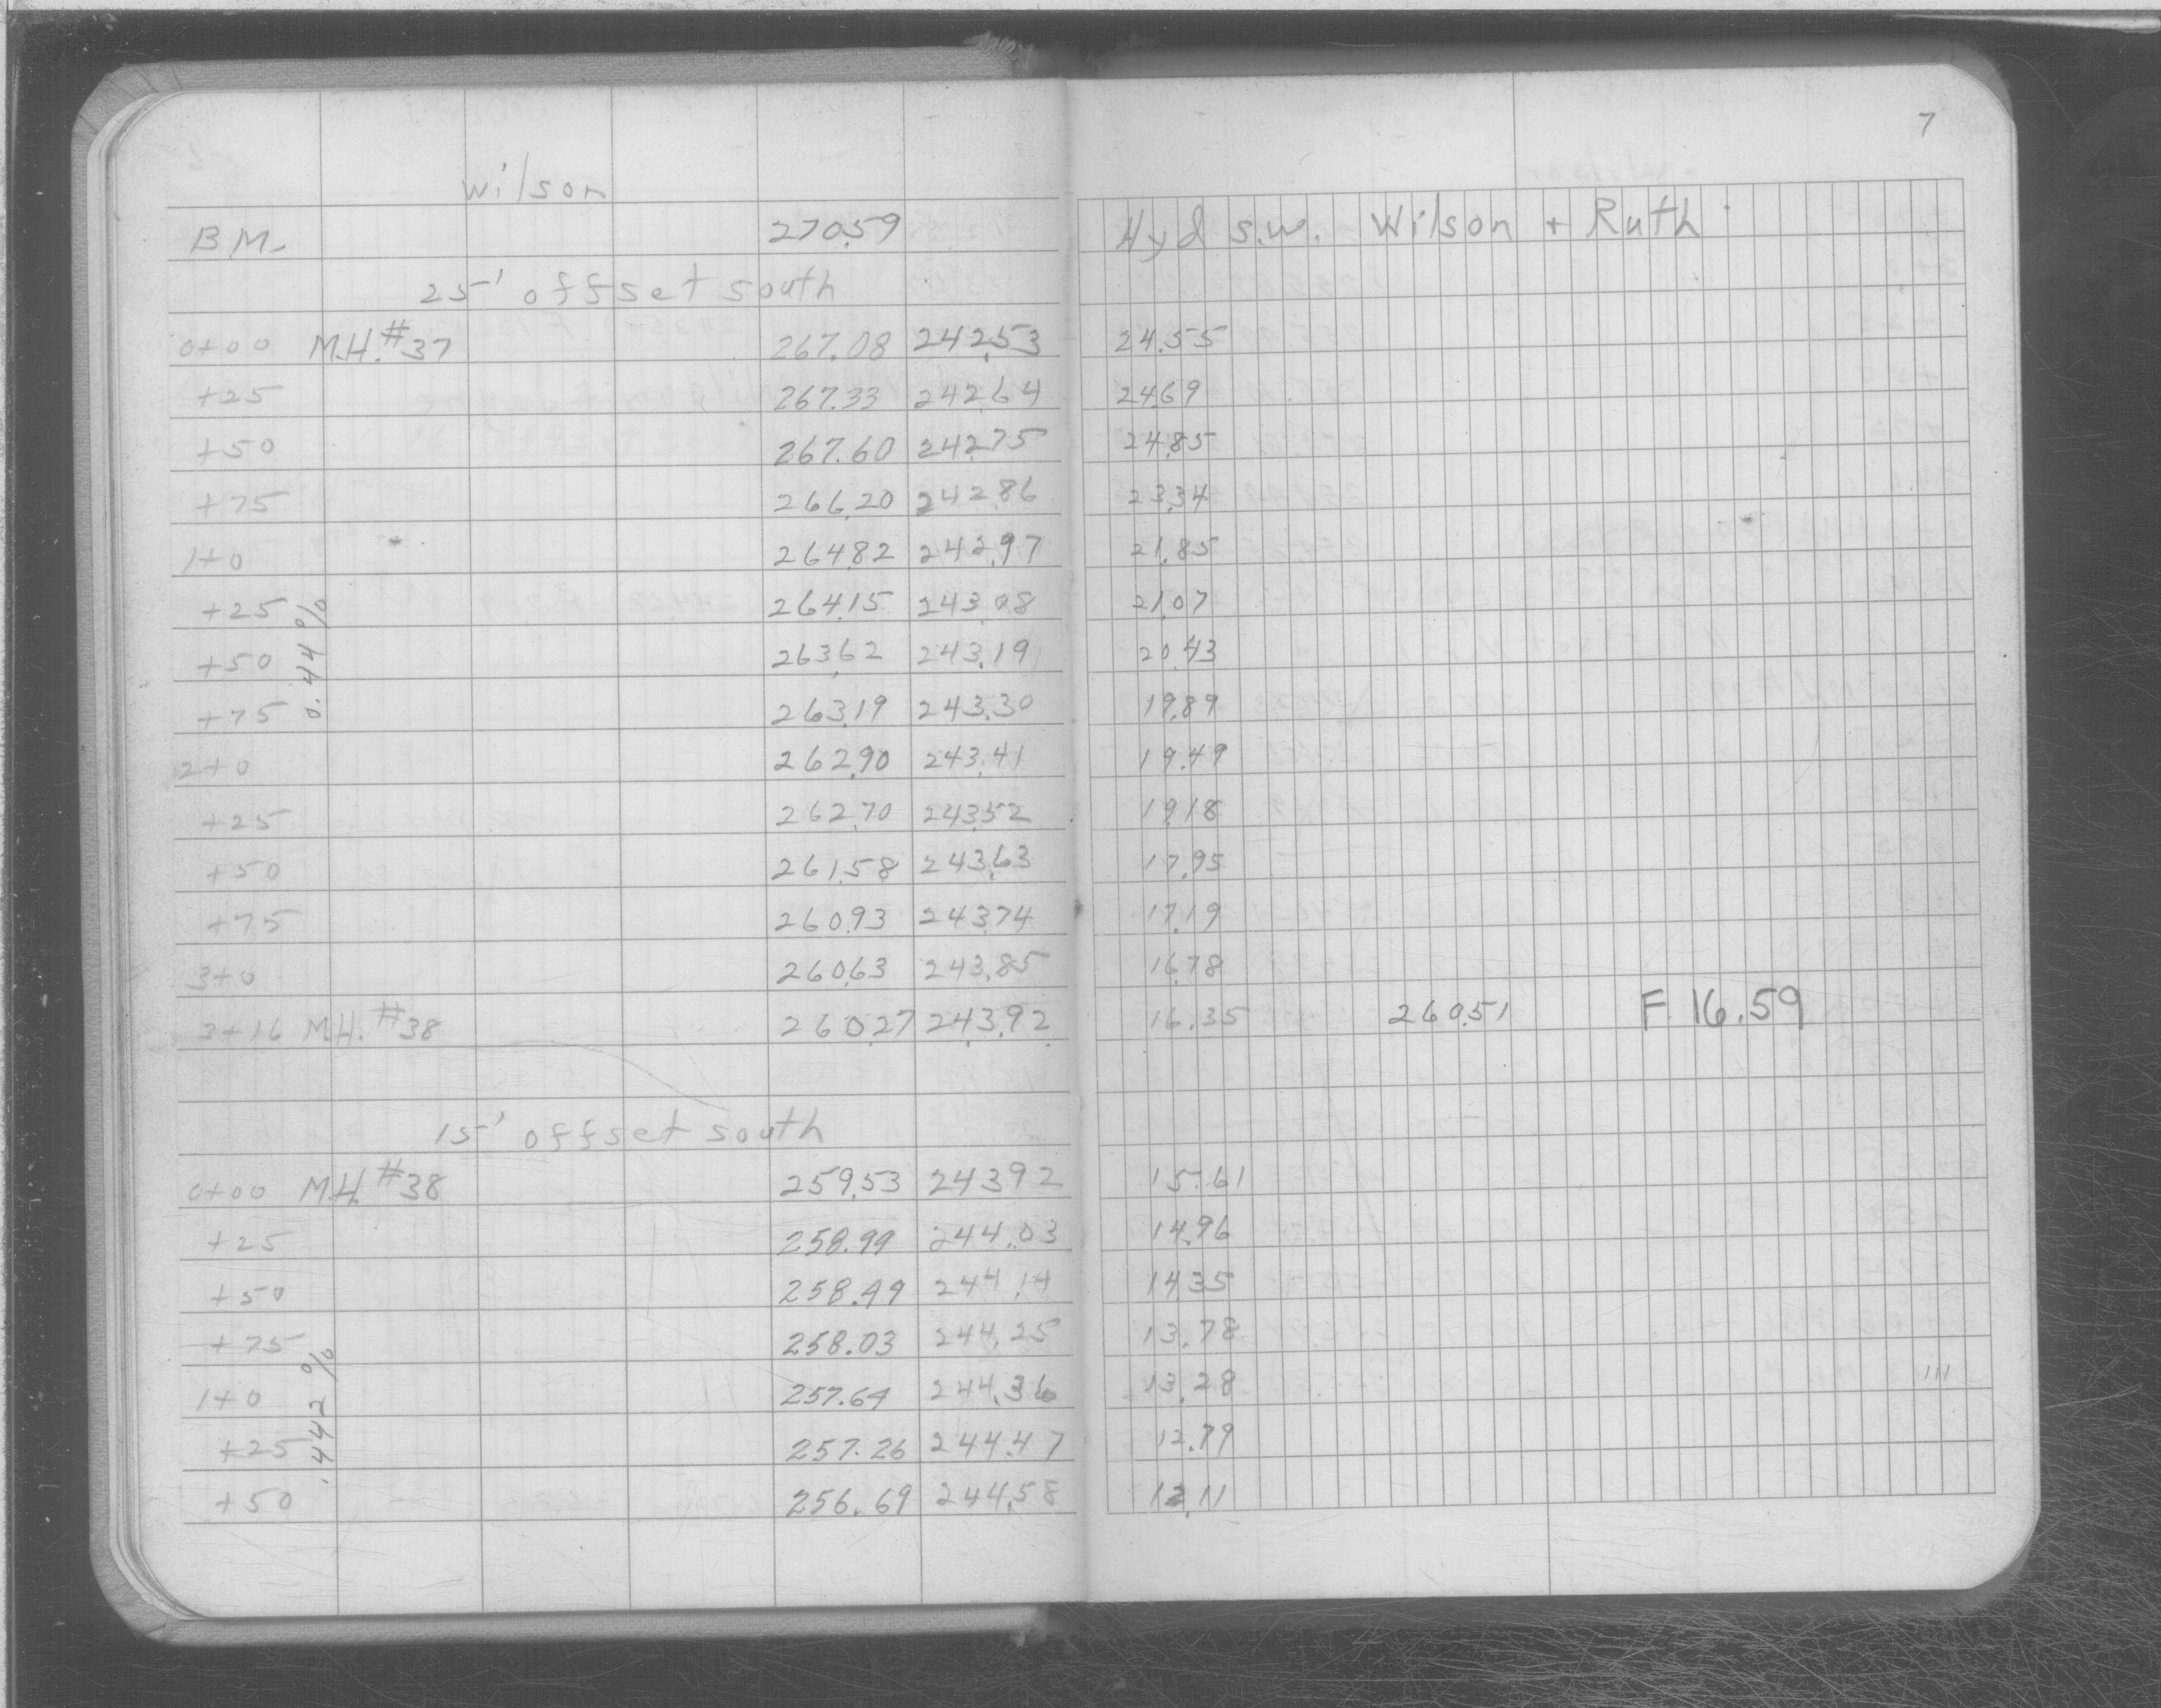 7
Wilson
B.M. 270.59 Hyd s.w. Wilson + Ruth
25' offset south
0+00 M.H. #37 267.08 242.53 24.55
+25 267.33 242.64 24.69
+50 267.60 242.75 24.85
+75 266.20 242.86 23.34
1+0 264.82 242.97 21.85
+25 264.15 243.08 21.07
+50 263.62 243.19 20.43
+75 263.19 243.30 19.89
0.44%
2+0 262.90 243.41 19.49
+25 262.70 243.52 19.18
+50 261.58 243.63 17.95
+75 260.93 243.74 17.19
3+0 260.63 243.85 16.78
3+16 M.H. #38 260.27 243.92 16.35 260.51 F. 16.59
15' offset south
0+00 M.H. #38 259.53 243.92 15.61
+25 258.99 244.03 14.96
+50 258.49 244.14 14.35
+75 258.03 244.25 13.78
1+0 257.64 244.36 13.28
+25 257.26 244.47 12.79
+50 256.69 244.58 12.11
.442%